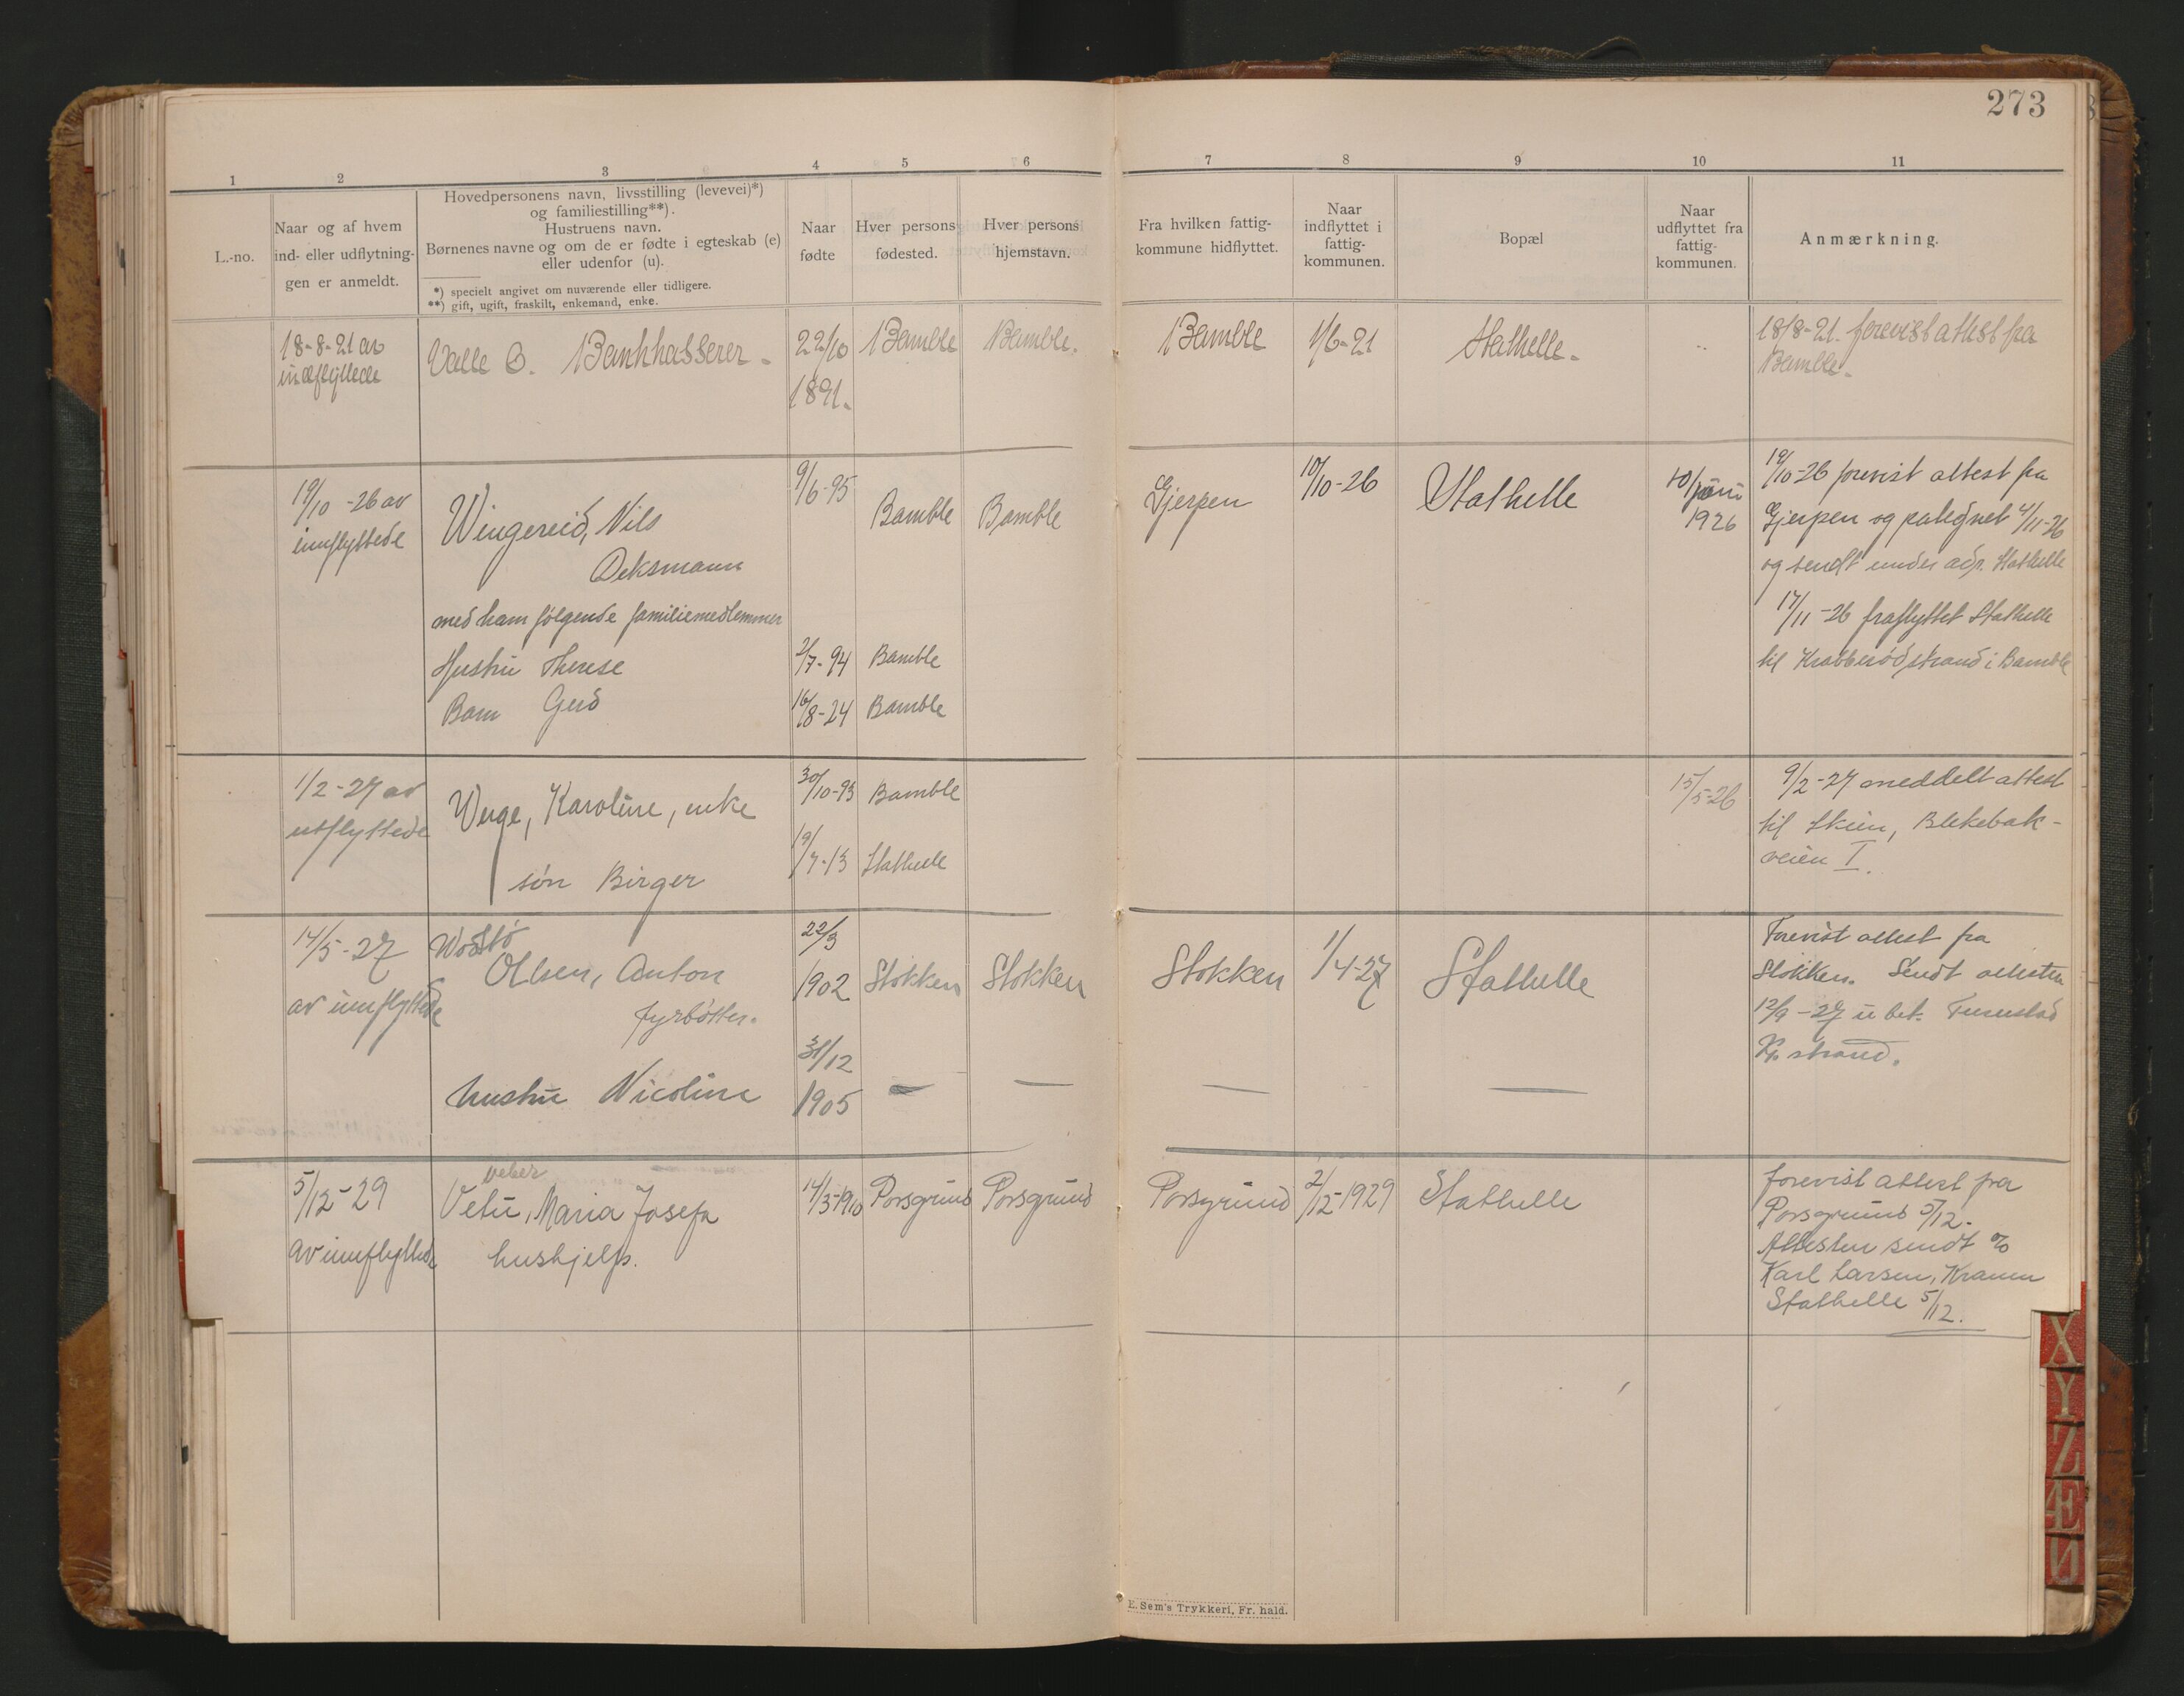 273
1 2 3 4 5 6 7 8 9 10 11
L.-no.
Naar og af hvem
ind- eller udflytnin-
gen er anmeldt.
Hovedpersonens navn, livsstilling (levevei)*)
og familiestilling**).
Hustruens navn.
Børnenes navne og om de er fødte i egteskab (e)
eller udenfor (u).
*) specielt angivet om nuværende eller tidligere.
**) gift, ugift, fraskilt, enkemand, enke.
Naar
fødte
Hver persons
fødested.
Hver persons
hjemstavn.
Fra hvilken fattig-
kommune hidflyttet.
Naar
indflyttet i
fattig-
kommunen.
Bopæl
Naar
udflyttet fra
fattig-
kommunen.
Anmærkning.
18-8-21 av
indflyttede
Valle O. Bankkasserer -
22/10
1891.
Bamble
Bamble.
Bamble
1/6-21
Stathelle.
18/8-21. forevist attest fra
Bamble.
19/10-26 av
innflyttede
Wingereid, Nils
Deksmann
med ham følgende familiemedlemmer
Hustru Therese
Barn Gerd
9/6-95
2/7-94
16/8-24
Bamble
Bamble
Bamble
Bamble
Gjerpen
10/10-26
Stathelle
1926
19/10-26 forevist attest fra
Gjerpen og pategnet 4/11-26
og sendt under adr. Stathelle
17/11-26 fraflyttet Stathelle
til Krabberødstrand i Bamble
1/2-27 av
utflyttede
Wege, Karoline, enke
søn Birger
30/10-93
19/7-13
Bamble
Stathelle
15/5-26
9/2-27 meddelt attest
til Skien, Blekebak-
veien I.
14/5-27
av innflyttede
Olsen, Anton
fyrbøter.
hustru Nicoline
22/3
1902
31/12
1905
Stokken
—
Stokken
—
Stokken
—
1/4-27
Stathelle
—
Forevist attest fra
Stokken. Sendt attesten
12/9-27
Kr. strand.
5/12-29
av innflyttede
Veber
Maria Josefa
hushjelp.
14/3-1910
Porsgrund
Porsgrund
Porsgrund
2/12-1929
Stathelle
forevist attest fra
Porsgrund 5/12.
Attesten sendt %
Karl Larsen,
Stathelle 5/12.
X
Y
Z
Æ
E. Sem's Trykkeri, Fr. hald.